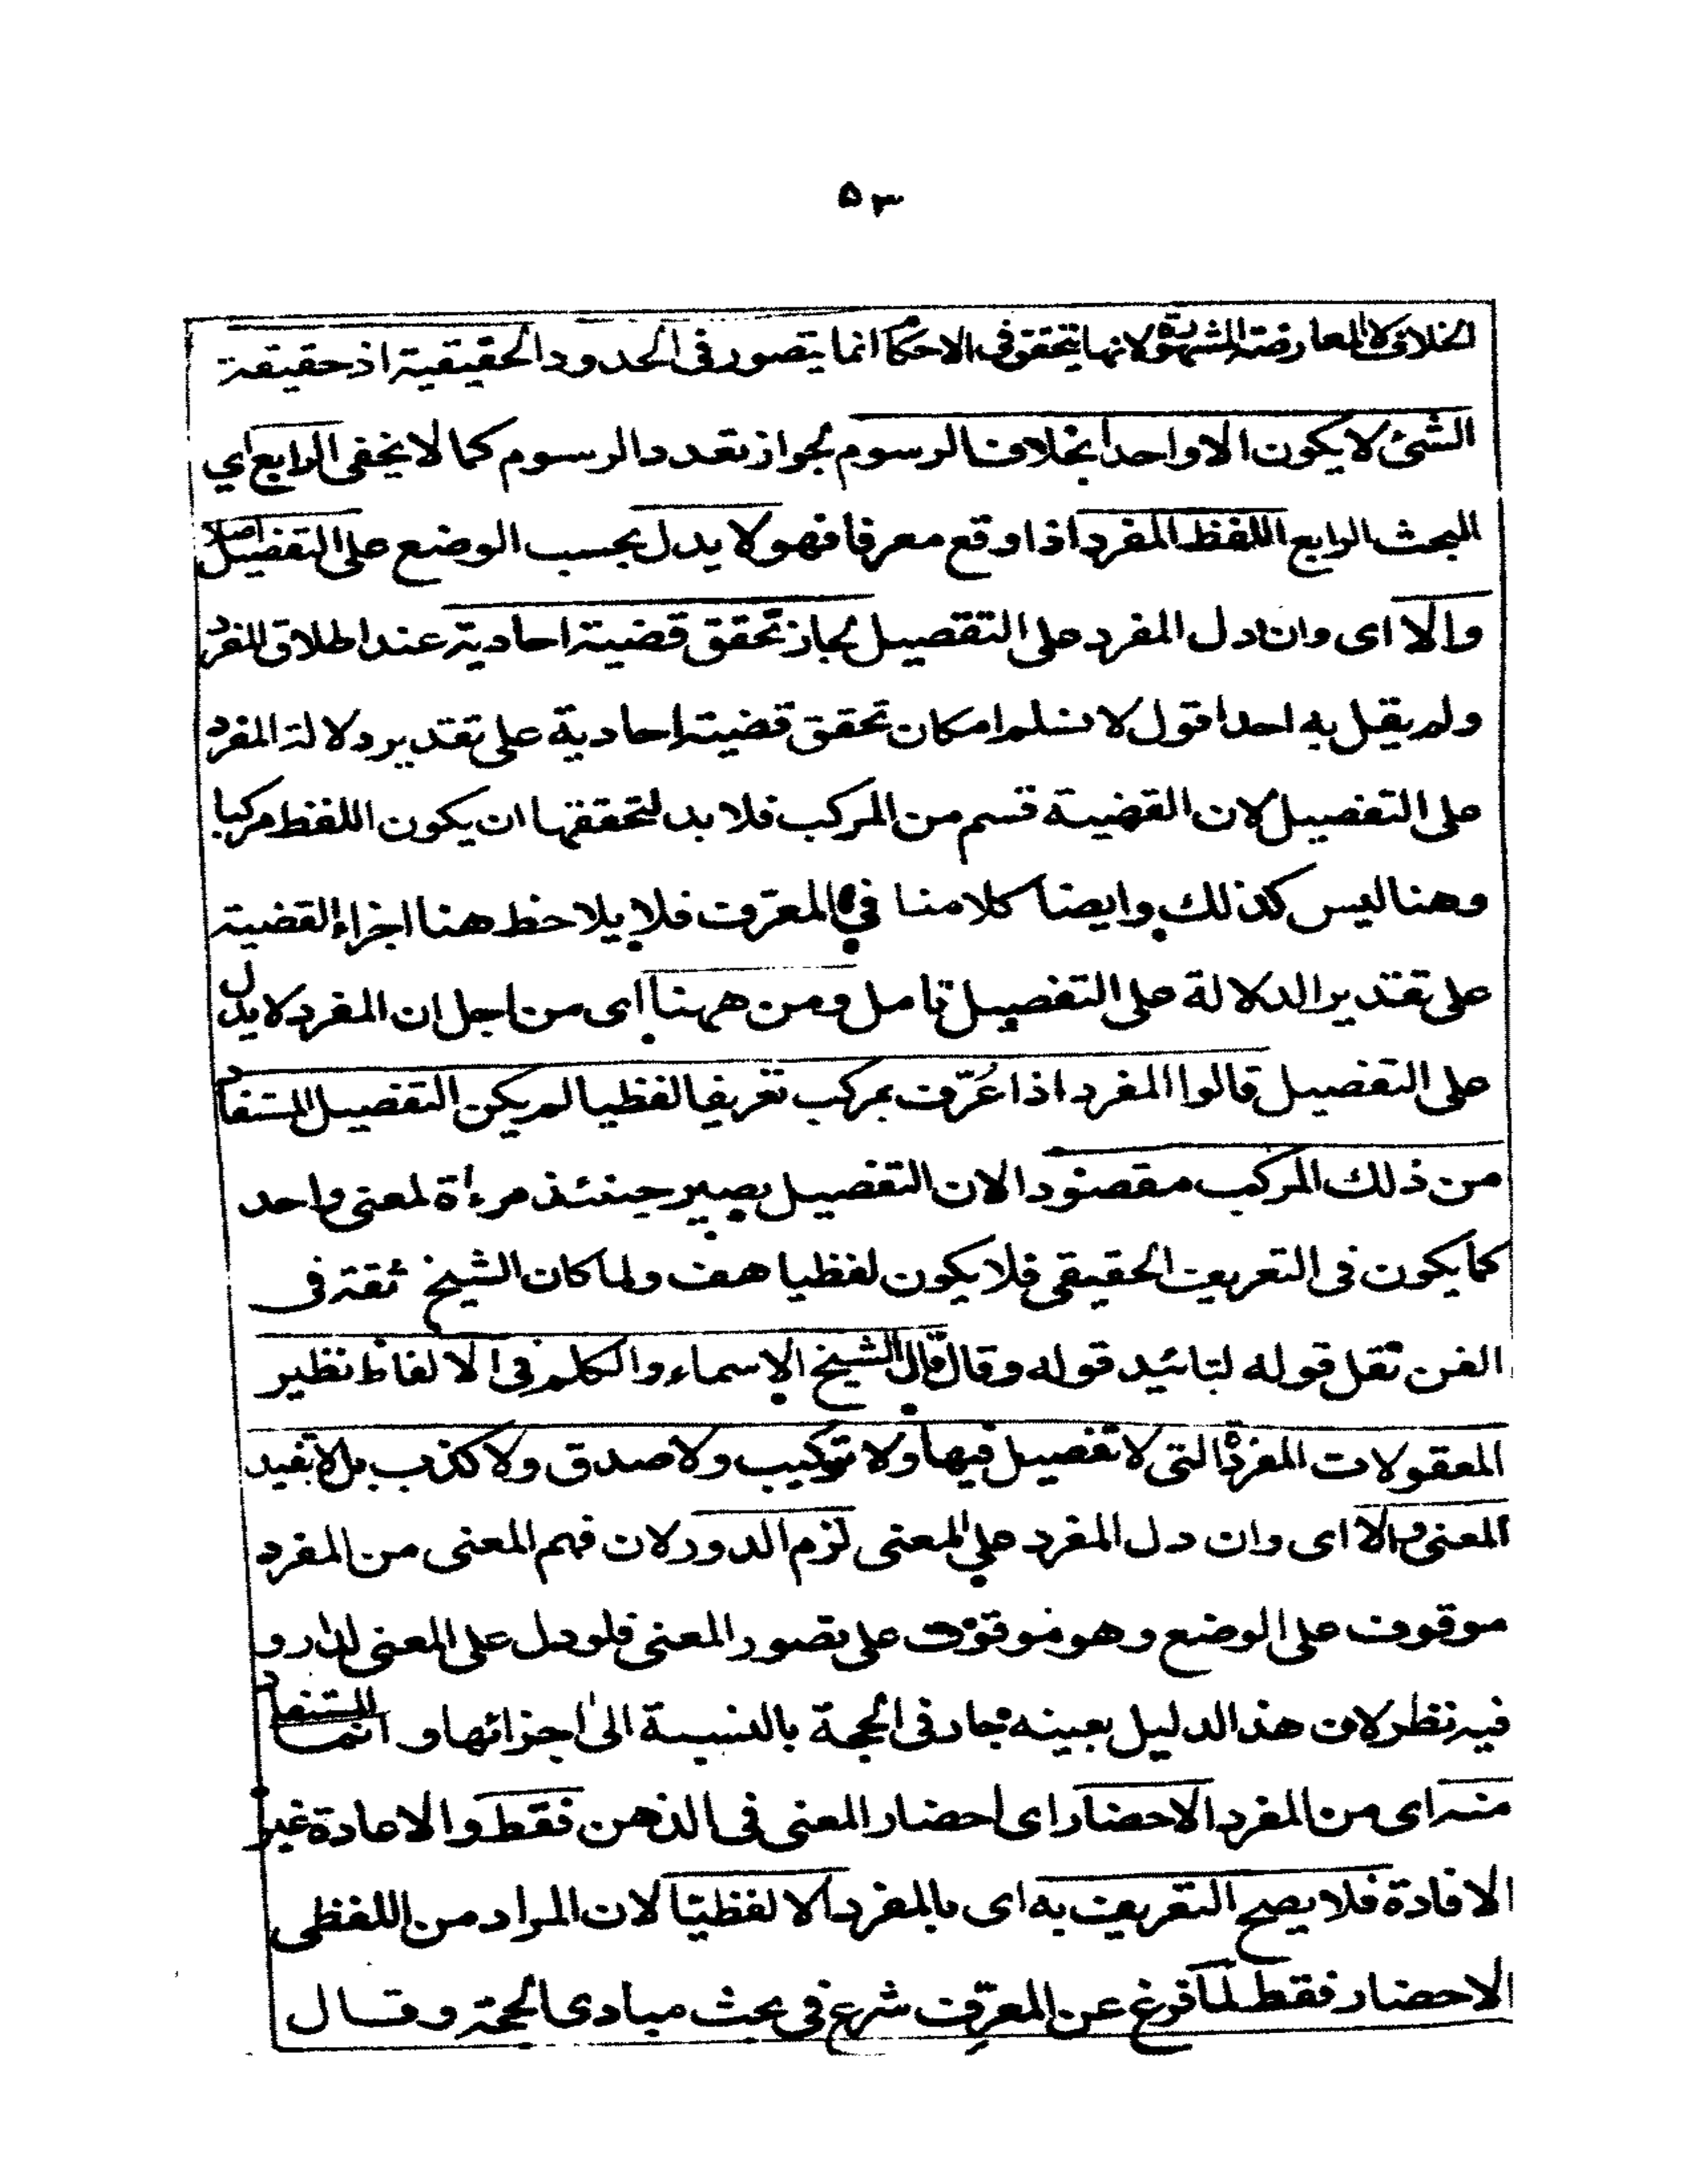 ۵۳
الخلاف لا المعارضة المشهورة لانها تتحقق فى الاحكام انما يتصور فى الحدود الحقيقية اذ حقيقة
الشئ لا يكون الا واحدا بخلاف الرسوم لجواز تعدد الرسوم كما لا يخفى الرابع اي
البحث الرابع اللفظ المفرد اذا وقع معرفا فهو لا يدل بحسب الوضع على التفضيل اصلا
والا اى وان دل المفرد على التقصيل لجاز تحقق قضية احادية عند اطلاق المفرد
ولم يقل به احد اقول لا نسلم امكان تحقق قضية احادية على تقدير دلالة المفرد
على التفصيل لان القضية قسم من المركب فلا بد لتحققها ان يكون اللفظ مركبا
وهنا ليس كذلك وايضا كلامنا في المعرّف فلا يلاحظ هنا اجزاء القضية
على تقدير الدلالة على التفصيل تامل ومن ههنا اى من اجل ان المفرد لا يدل
على التفصيل قالوا المفرد اذا عُرّف بمركب تعريفا لفظيا لم يكن التفصيل المستفاد
من ذلك المركب مقصودا لان التفصيل يصير حينئذ مرءاة لمعنى واحد
كما يكون فى التعريف الحقيقى فلا يكون لفظيا هف ولما كان الشيخ ثقة فى
الفن نقل قوله لتائيد قوله وقال قال الشيخ الاسماء والكلم فى الالفاظ نظير
المعقولات المفردة التى لا تفصيل فيها ولا تركيب ولا صدق ولا كذب بل لا تفيد
المعنى والا اى وان دل المفرد على المعنى لزم الدور لان فهم المعنى من المفرد
موقوف على الوضع وهو موقوف على تصور المعنى فلو دل على المعنى لدار و
فيه نظر لان هذ الدليل بعينه جار فى الحجة بالنسبة الى اجزائها و انما المستفاد
منه اى من المفرد الاحضار اى احضار المعنى فى الذهن فقط والاعادة غير
الافادة فلا يصح التعريف به اى بالمفرد الا لفظيّا لان المراد من اللفظى
الاحضار فقط لما فرغ عن المعرّف شرع فى بحث مبادى الحجة وقال